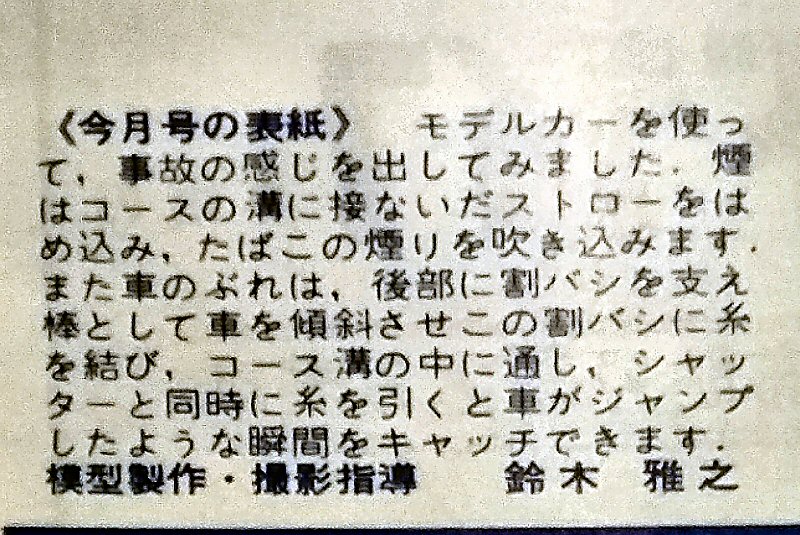 《今月号の表紙》　モデルカーを使っ
て，事故の感じを出してみました．煙
はコースの溝に接ないだストローをは
め込み，たばこの煙りを吹き込みます．
また車のぶれは，後部に割バシを支え
棒として車を傾斜させこの割バシに糸
を結び，コース溝の中に通し，シャッ
ターと同時に糸を引くと車がジャンプ
したような瞬間をキャッチできます．
模型製作・撮影指導　　鈴木　雅之